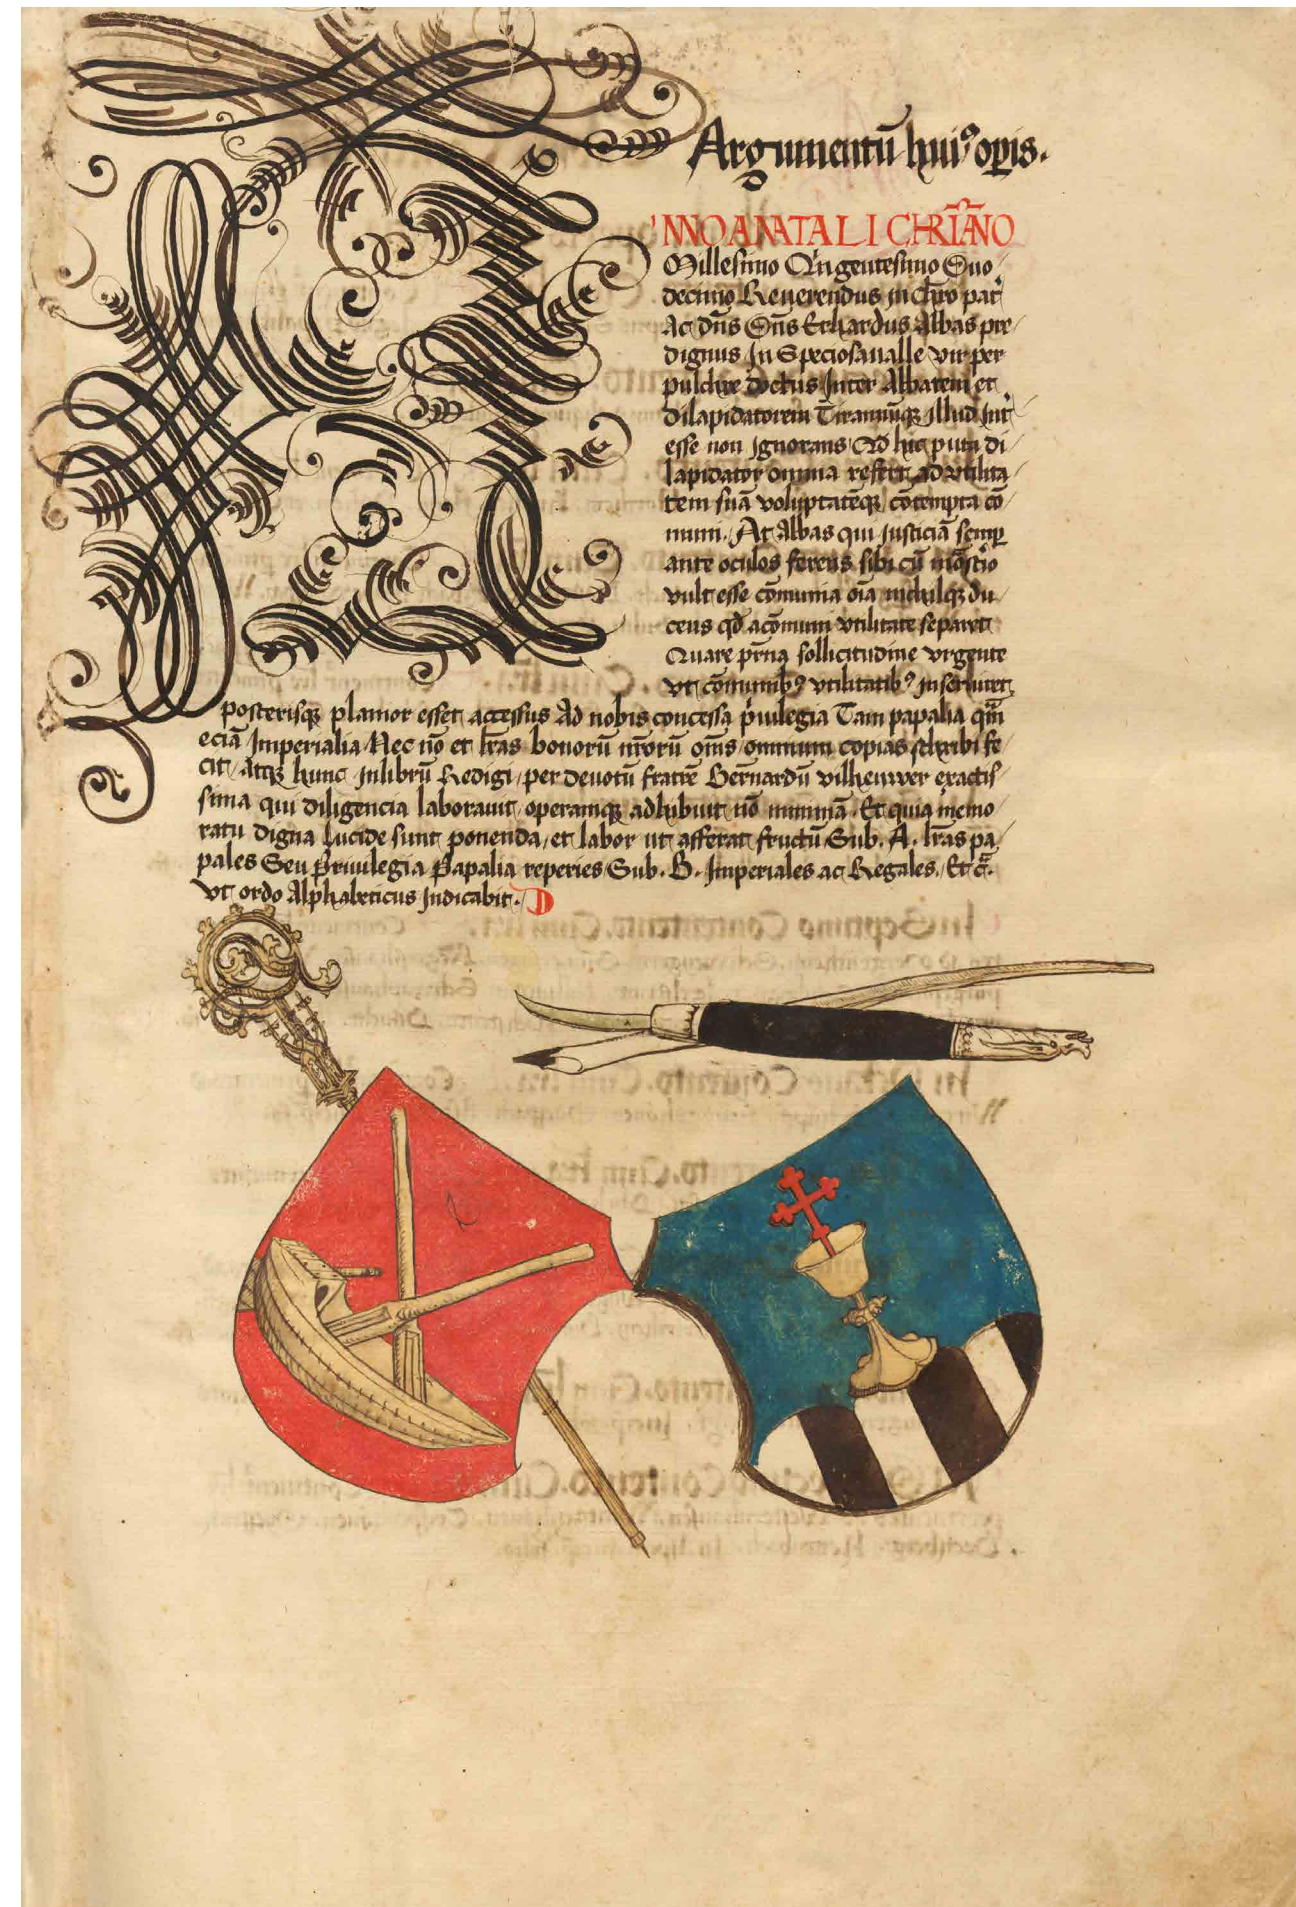 Argumentū hui9 opis.
NNO A NATALI CHRĪANO
Millesimo Qngentesimo Duo
decimo Reuerendus in chro pat
Ac dn̄s Dn̄s Erhardus Abbas pre
dignus In Speciosaualle vir per
pulchre doctus Inter Abbatem et
dilapidatorem Tirannūq illud int
esse non Ignorans Qd hic puta di
lapidator omnia refert ad vtilita
tem suā voluptatēq cōtempta cō
muni. At Abbas qui Justiciā semp
ante oculos ferens sibi cū mōstio
vult esse cōmunia oīa nichilq du
cens qd acōmuni vtilitate separet
Quare prna sollicitudine vrgente
vt cōmunib9 vtilitatib9 inseruiret
posterisq planior esset accessus Ad nobis concessa priuilegia Tam papalia qm
eciā Imperialia Nec nō et lr̄as bonorū nr̄orū om̄s omnium copias scribi fe
cit Atq hunc inlibrū Redigi per deuotū fratrē Bern̄ardū vilhewer exactis
sima qui diligencia laborauit operamq adhibuit nō minimā. Et quia memo
ratu digna Lucide sunt ponenda et labor ut afferat fructū Sub. A. lr̄as pa
pales Seu Priuilegia Papalia reperies Sub. B. Imperiales ac Regales. Et c̄.
vt ordo Alphabeticus Indicabit.